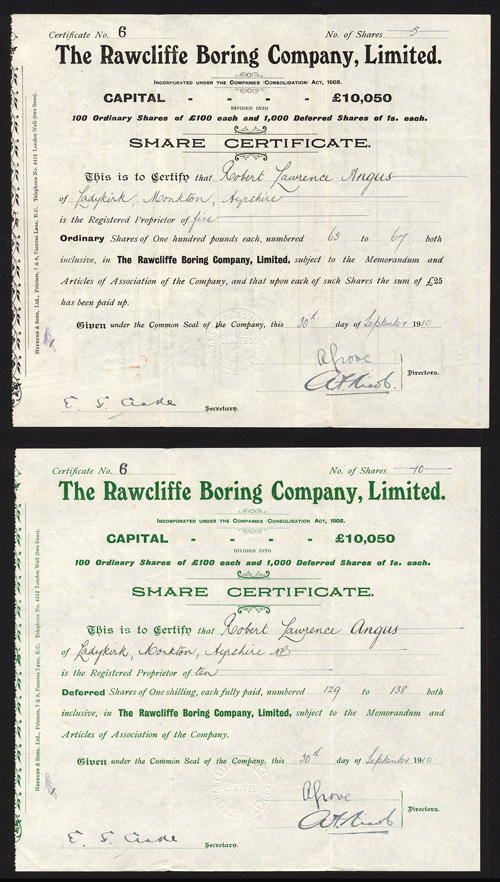 Certificate No. 6 No. of Shares 5
The Rawcliffe Boring Company, Limited.
Incorporated under the Companies (Consolidation) Act, 1908.
CAPITAL - - - - £10,050
DIVIDED INTO
100 Ordinary Shares of £100 each and 1,000 Deferred Shares of 1s. each.
SHARE CERTIFICATE.
This is to Certify that Robert Lawrence Angus
of Ladykirk, Monkton, Ayrshire
is the Registered Proprietor of five
Ordinary Shares of One hundred pounds each, numbered 63 to 67 both
inclusive, in The Rawcliffe Boring Company, Limited, subject to the Memorandum and
Articles of Association of the Company, and that upon each of such Shares the sum of £25
has been paid up.
Given under the Common Seal of the Company, this 30th day of September 1910
Directors.
Secretary.
Sons, Ltd., Printers, 7 & 8, Pancras Lane, E.C. Telephone No. 4412 London Wall (two lines).
Certificate No. 6 No. of Shares 10
The Rawcliffe Boring Company, Limited.
Incorporated under the Companies (Consolidation) Act, 1908.
CAPITAL - - - - £10,050
DIVIDED INTO
100 Ordinary Shares of £100 each and 1,000 Deferred Shares of 1s. each.
SHARE CERTIFICATE.
This is to Certify that Robert Lawrence Angus
of Ladykirk, Monkton, Ayrshire NB
is the Registered Proprietor of ten
Deferred Shares of One shilling, each fully paid, numbered 129 to 138 both
inclusive, in The Rawcliffe Boring Company, Limited, subject to the Memorandum and
Articles of Association of the Company.
Given under the Common Seal of the Company, this 30th day of September 1910
Directors.
Secretary.
Sons, Ltd., Printers, 7 & 8, Pancras Lane, E.C. Telephone No. 4412 London Wall (two lines).